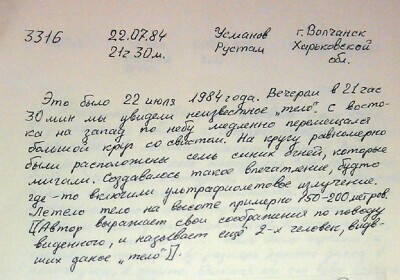 3316 22.07.84 Усманов г. Волчанск
21ч 30м. Рустам Харьковской
обл.
Это было 22 июля 1984 года. Вечерам в 21 час
30 мин мы увидели неизвестное „тело“. С восто-
ка на запад по небу медленно перемещался
большой круг со свистом. На кругу равномерно
были расположены семь синих огней, которые
мигали. Создавалось такое впечатление, будто
где-то включили ультрафиолетовое излучение.
Летело тело на высоте примерно 150-200 метров.
[[Автор выражает свои соображения по поводу
виденного, и называет ещё 2-х человек, видев-
ших даное „тело“]].